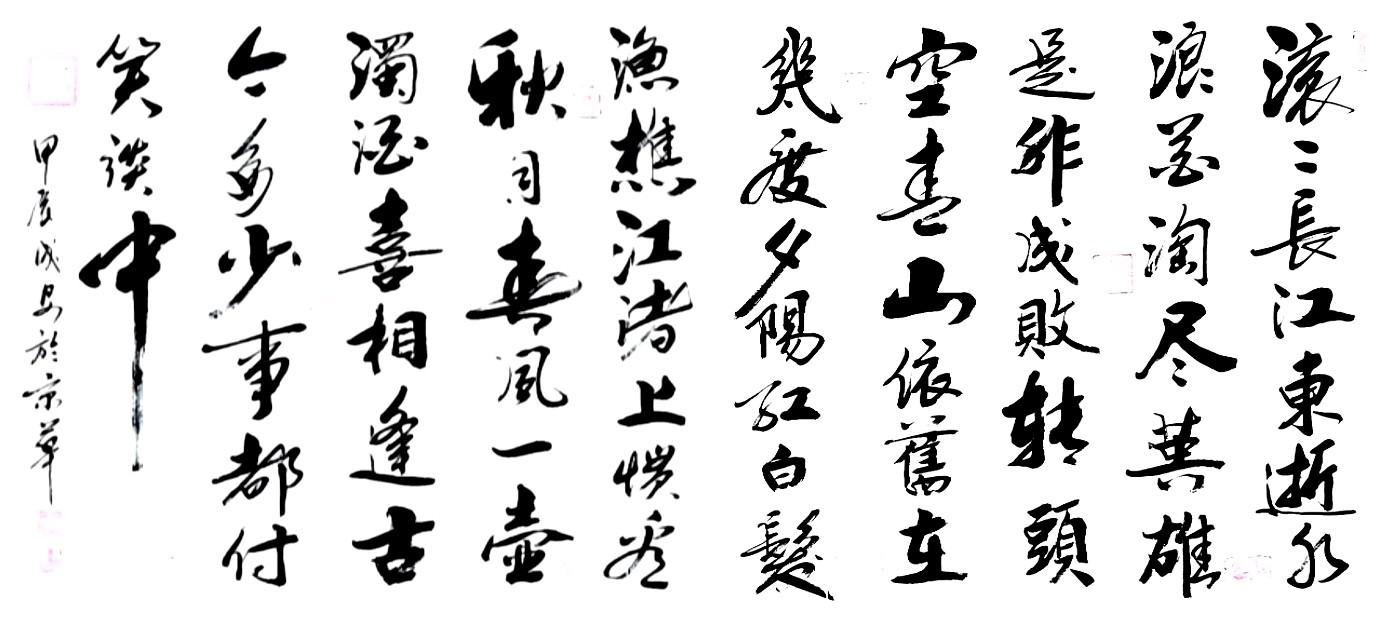 滚二長江東逝水
浪花淘尽英雄
是非成敗转頭
空青山依舊在
幾度夕陽红白髮
漁樵江渚上惯看
秋月春風一壶
濁酒喜相逢古
今多少事都付
笑谈中
甲辰成昌於京華